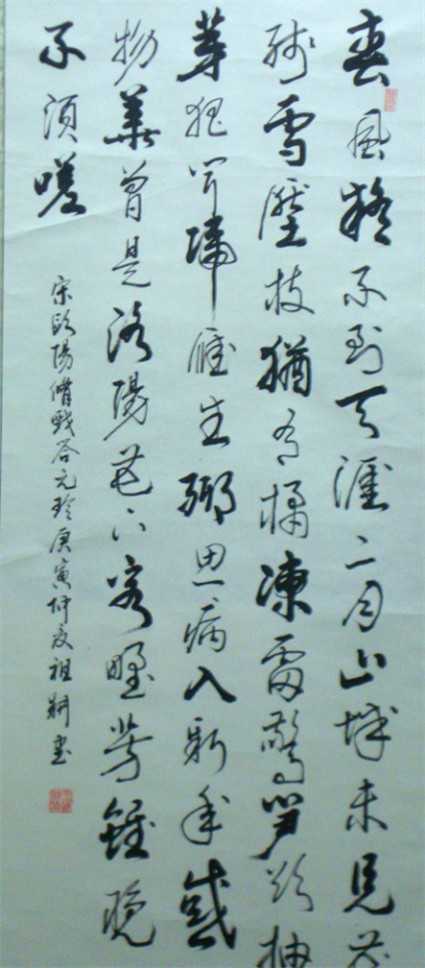 春風疑不到天涯二月山城未見花
殘雪壓枝猶有橘凍雷驚笋欲抽
芽夜聞歸雁生鄉思病入新年感
物華曾是洛陽花下客野芳雖晚
不須嗟
宋歐陽脩戲答元珍庚寅仲夏祖書